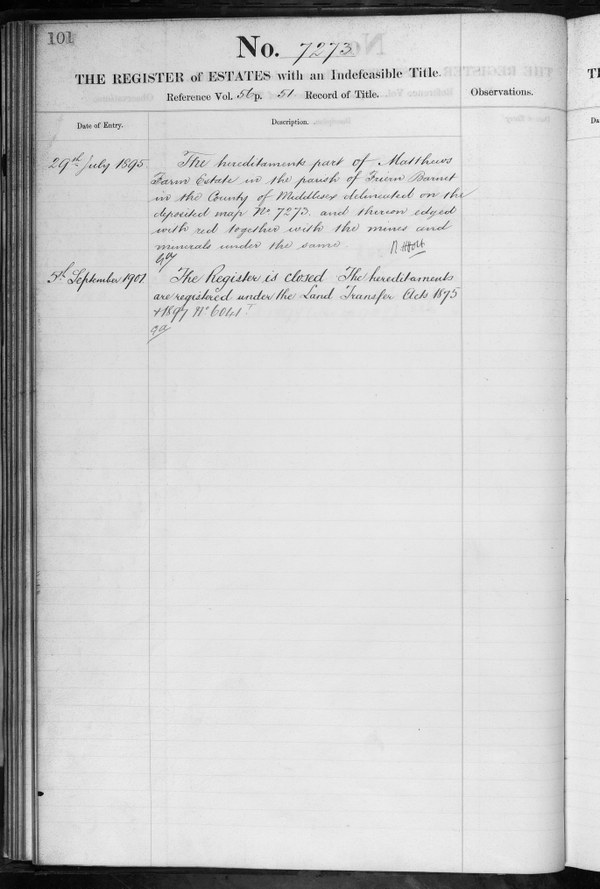 101
No. 7273
THE REGISTER of ESTATES with an Indefeasible Title.
Reference Vol. 56 p. 51 Record of Title.
Observations.
Date of Entry.
Description.
29th July 1895
The hereditaments part of Matthews
Farm Estate in the parish of Friern Barnet
in the County of Middlesex delineated on the
deposited map No 7273 and thereon edged
with red together with the mines and
minerals under the same
R H Holt
5th September 1901.
The Register is closed The hereditaments
are registered under the Land Transfer Acts 1875
& 1897 No 6041